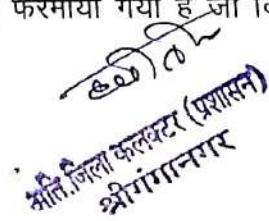 फरमाया गया है जो
अति.जिला कलक्टर (प्रशासन)
श्रीगंगानगर